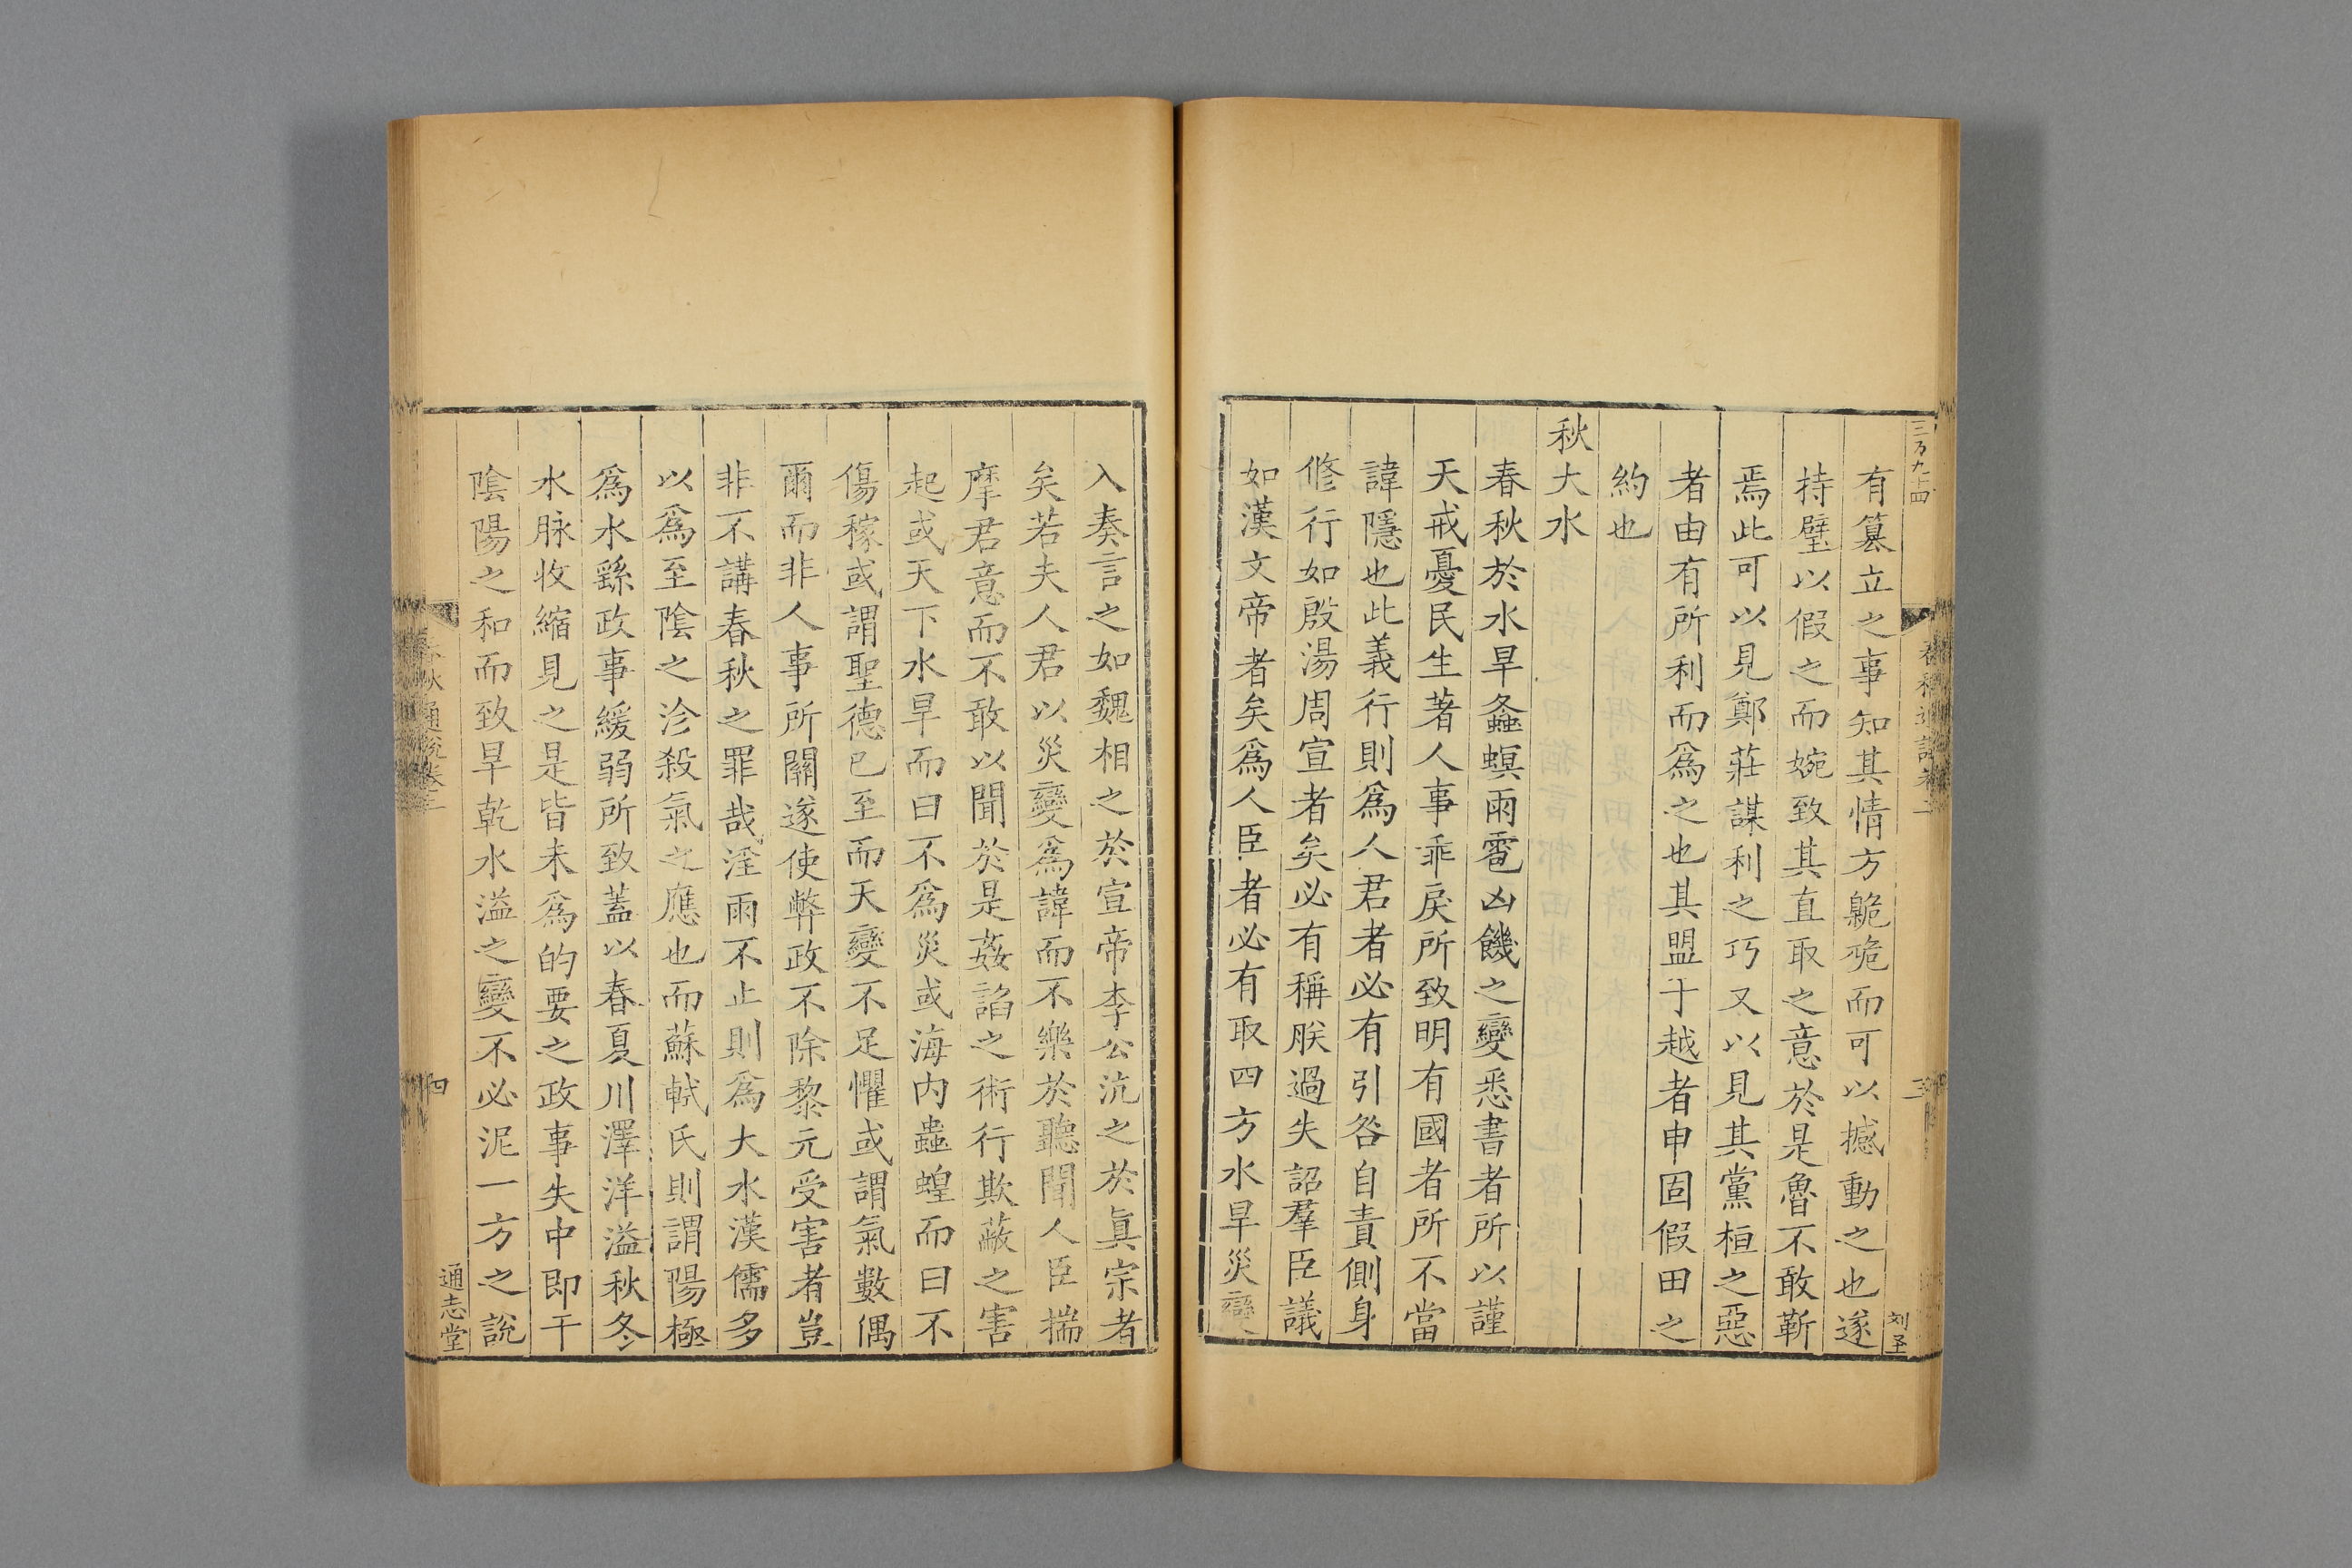 有篡立之事知其情方臲卼而可以撼動之也遂
持璧以假之而婉致其直取之意於是魯不敢靳
焉此可以見鄭莊謀利之巧又以見其黨桓之惡
者由有所利而爲之也其盟于越者申固假田之
約也
秋大水
春秋於水旱螽螟雨雹凶饑之變悉書者所以謹
天戒憂民生著人事乖戾所致明有國者所不當
諱隱也此義行則爲人君者必有引咎自責側身
修行如殷湯周宣者矣必有稱朕過失詔羣臣議
如漢文帝者矣爲人臣者必有取四方水旱災變
入奏言之如魏相之於宣帝李公沆之於眞宗者
矣若夫人君以災變爲諱而不樂於聽聞人臣揣
摩君意而不敢以聞於是姦諂之術行欺蔽之害
起或天下水旱而曰不爲災或海内蟲蝗而曰不
傷稼或謂聖德已至而天變不足懼或謂氣數偶
爾而非人事所關遂使弊政不除黎元受害者豈
非不講春秋之罪哉淫雨不止則爲大水漢儒多
以爲至陰之沴殺氣之應也而蘇軾氏則謂陽極
爲水繇政事緩弱所致蓋以春夏川澤洋溢秋冬
水脉收縮見之是皆未爲的要之政事失中即干
陰陽之和而致旱乾水溢之變不必泥一方之說
春秋通說卷二
四
通志堂